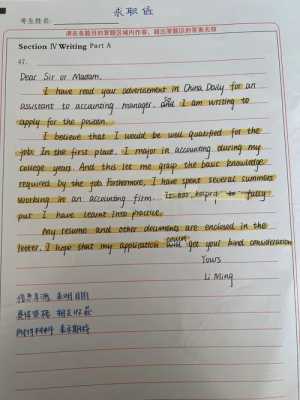 求职信
考生姓名:
请在各题目的答题区域内作答,超出答题区的答案无效
Section Ⅳ Writing Part A
47.
Dear Sir or Madam,
I have read your advertisement in China Daily for an
assistant to accounting manager, and I am writing to
apply for the position.
I believe that I would be well qualified for the
job. In the first place, I major in accounting during my
college years. And this let me grasp the basic knowledge
required by the job. Furthermore, I have spent several summers
working in an accounting firm. to fully
put I have learnt into practice.
My resume and other documents are enclosed in the
letter. I hope that my application could get your kind consideration
Yours
Li Ming
信息来源